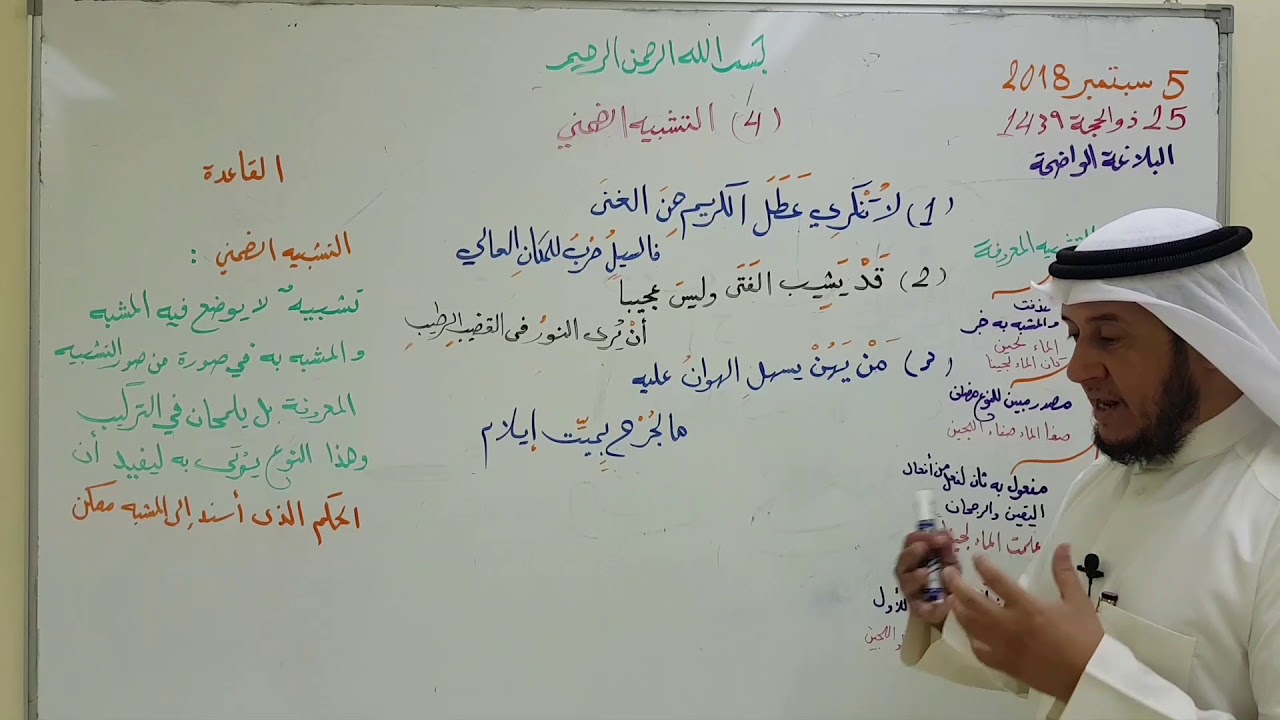 بسم الله الرحمن الرحيم
5 سبتمبر 2018
25 ذو الحجة 1439
البلاغة الواضحة
(4) التشبيه الضمني
(1) لا تُنْكِري عَطَلَ الكريمِ مِنَ الغنَى
فالسيلُ حَرْبٌ للمكانِ العالي
(2) قَدْ يَشِيب الفَتَى وليسَ عجيباً
أنْ يُرى النورُ في القضيبِ الرطيبِ
(3) مَنْ يَهُنْ يسهلِ الهوانُ عليه
ما لجُرْحٍ بِميِّت إيلام
القاعدة
التشبيه الضمني :
تشبيهٌ لا يوضع فيه المشبه
والمشبه به في صورة من صور التشبيه
المعروفة بل يلمحان في التركيب
وهذا النوع يؤتى به ليفيد أن
الحكم الذي أسند إلى المشبه ممكن
التشبيه المعروفة
والمشبه به خبر
الماء لجين
كان الماء لجينا
مصدر مبين للنوع مضاف
صفا الماء صفاء اللجين
مفعول به ثان لفعل من أفعال
اليقين والرجحان
علمت الماء لجينا
للأول
اللجين